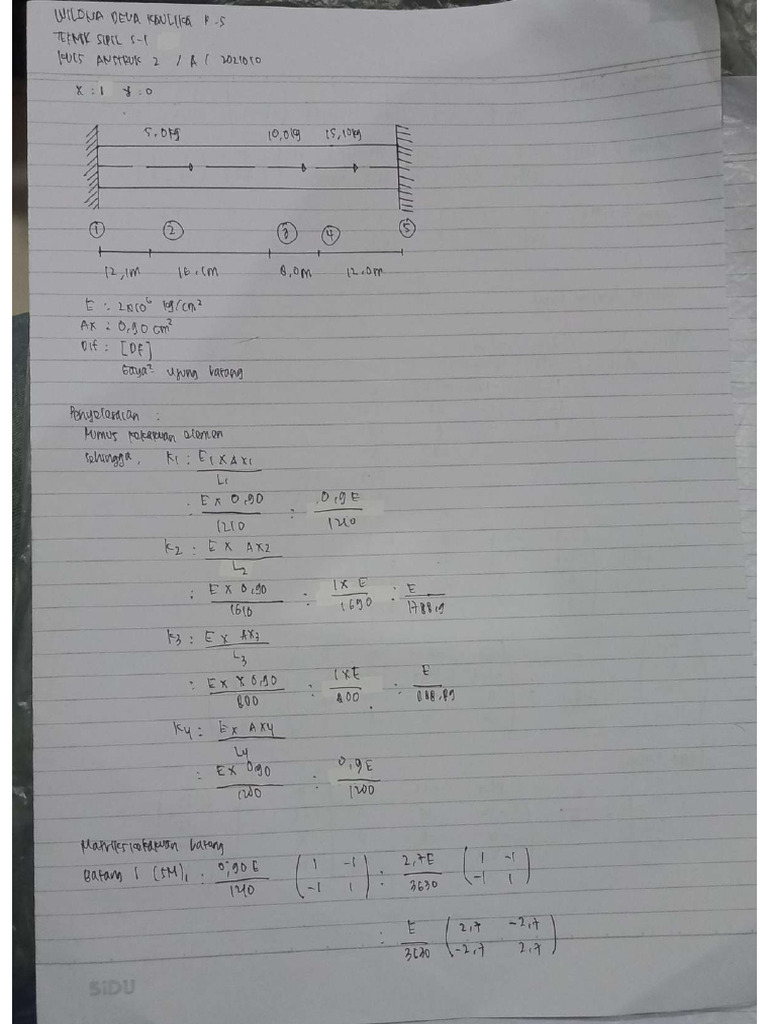 WILDNA DEVA KAULIKA P.S
TEKNIK SIPIL S-1
KUIS ANSTRUK 2 / A / 2021010
X : 1 Y : 0
5,0 kg 10,0 kg 15,10 kg
1 2 3 4 5
12,1m 16,1m 8,0m 12,0m
E : 2x10⁶ kg/cm²
Ax : 0,90 cm²
Dit : [DF]
Gaya² ujung batang
Penyelesaian :
Rumus kekakuan elemen
sehingga, K1 : E1 x Ax1 / L1
: E x 0,90 / 1210 : 0,9 E / 1210
K2 : E x Ax2 / L2
: E x 0,90 / 1610 : 1 x E / 1690 : E / 1788,9
K3 : E x Ax3 / L3
: E x x 0,90 / 800 : 1 x E / 800 : E / 888,89
K4 : E x Ax4 / L4
: E x 0,90 / 1200 : 0,9 E / 1200
Matriks kekakuan batang
Batang 1 (SM)1 : 0,90 E / 1210 ( 1 -1 -1 1 ) : 2,7E / 3630 ( 1 -1 -1 1 )
: E / 3630 ( 2,7 -2,7 -2,7 2,7 )
SiDU